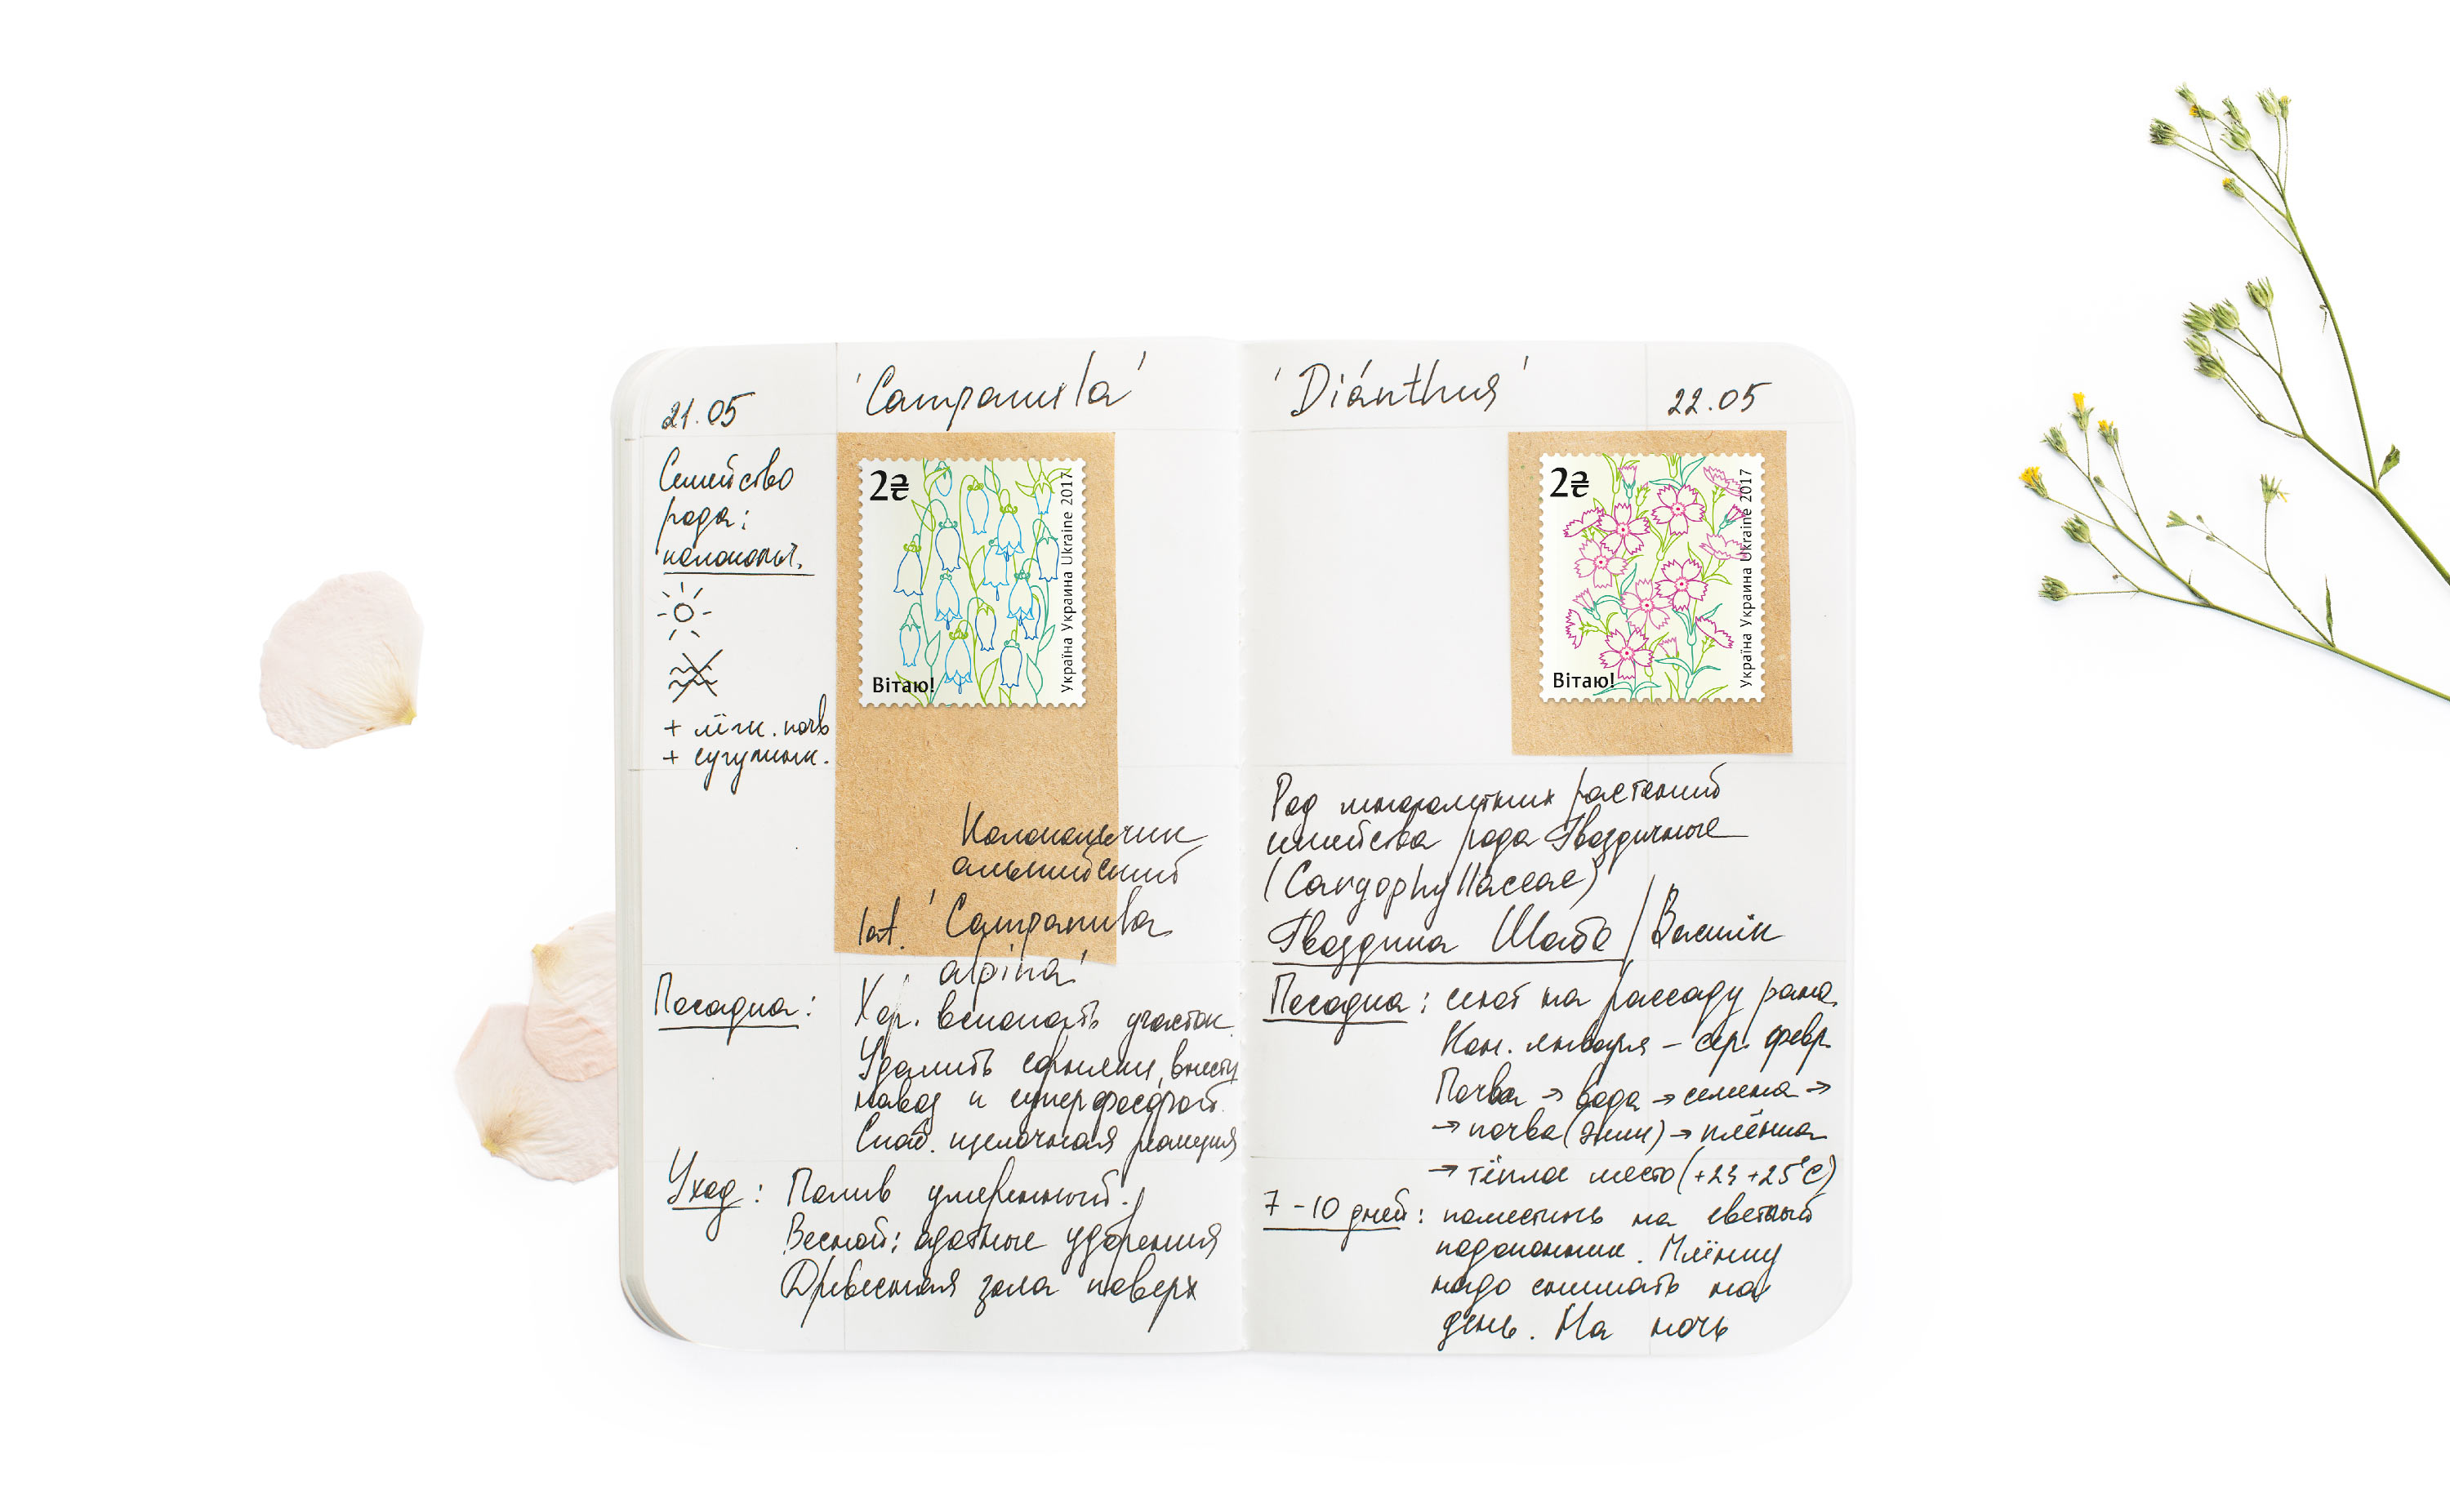 21.05
'Campanula'
Семейство
рода:
колокольч.
+ лёгк. почв
+ суглинк.
2₴
Україна Украина Ukraine 2017
Вітаю!
Колокольчик
альпийский
lat. 'Campanula
alpina'
Посадка: Хор. вскопать участок.
Удалить сорняки, внести
навоз и суперфосфат.
Слаб. щелочная реакция
Уход: Полив умеренный.
Весной: азотные удобрения
Древесная зола поверх
'Diánthus'
22.05
2₴
Україна Украина Ukraine 2017
Вітаю!
Род многолетних растений
семейства рода Гвоздичные
(Caryophyllaceae)
Гвоздика Шабо /
Посадка: сеют на рассаду рано.
Кон. января – сер. февр.
Почва → вода → семена →
→ почва (3мм) → плёнка
→ тёпла место (+23 +25°C)
7 – 10 дней: поместить на светлый
подоконник. Плёнку
надо снимать на
день. На ночь